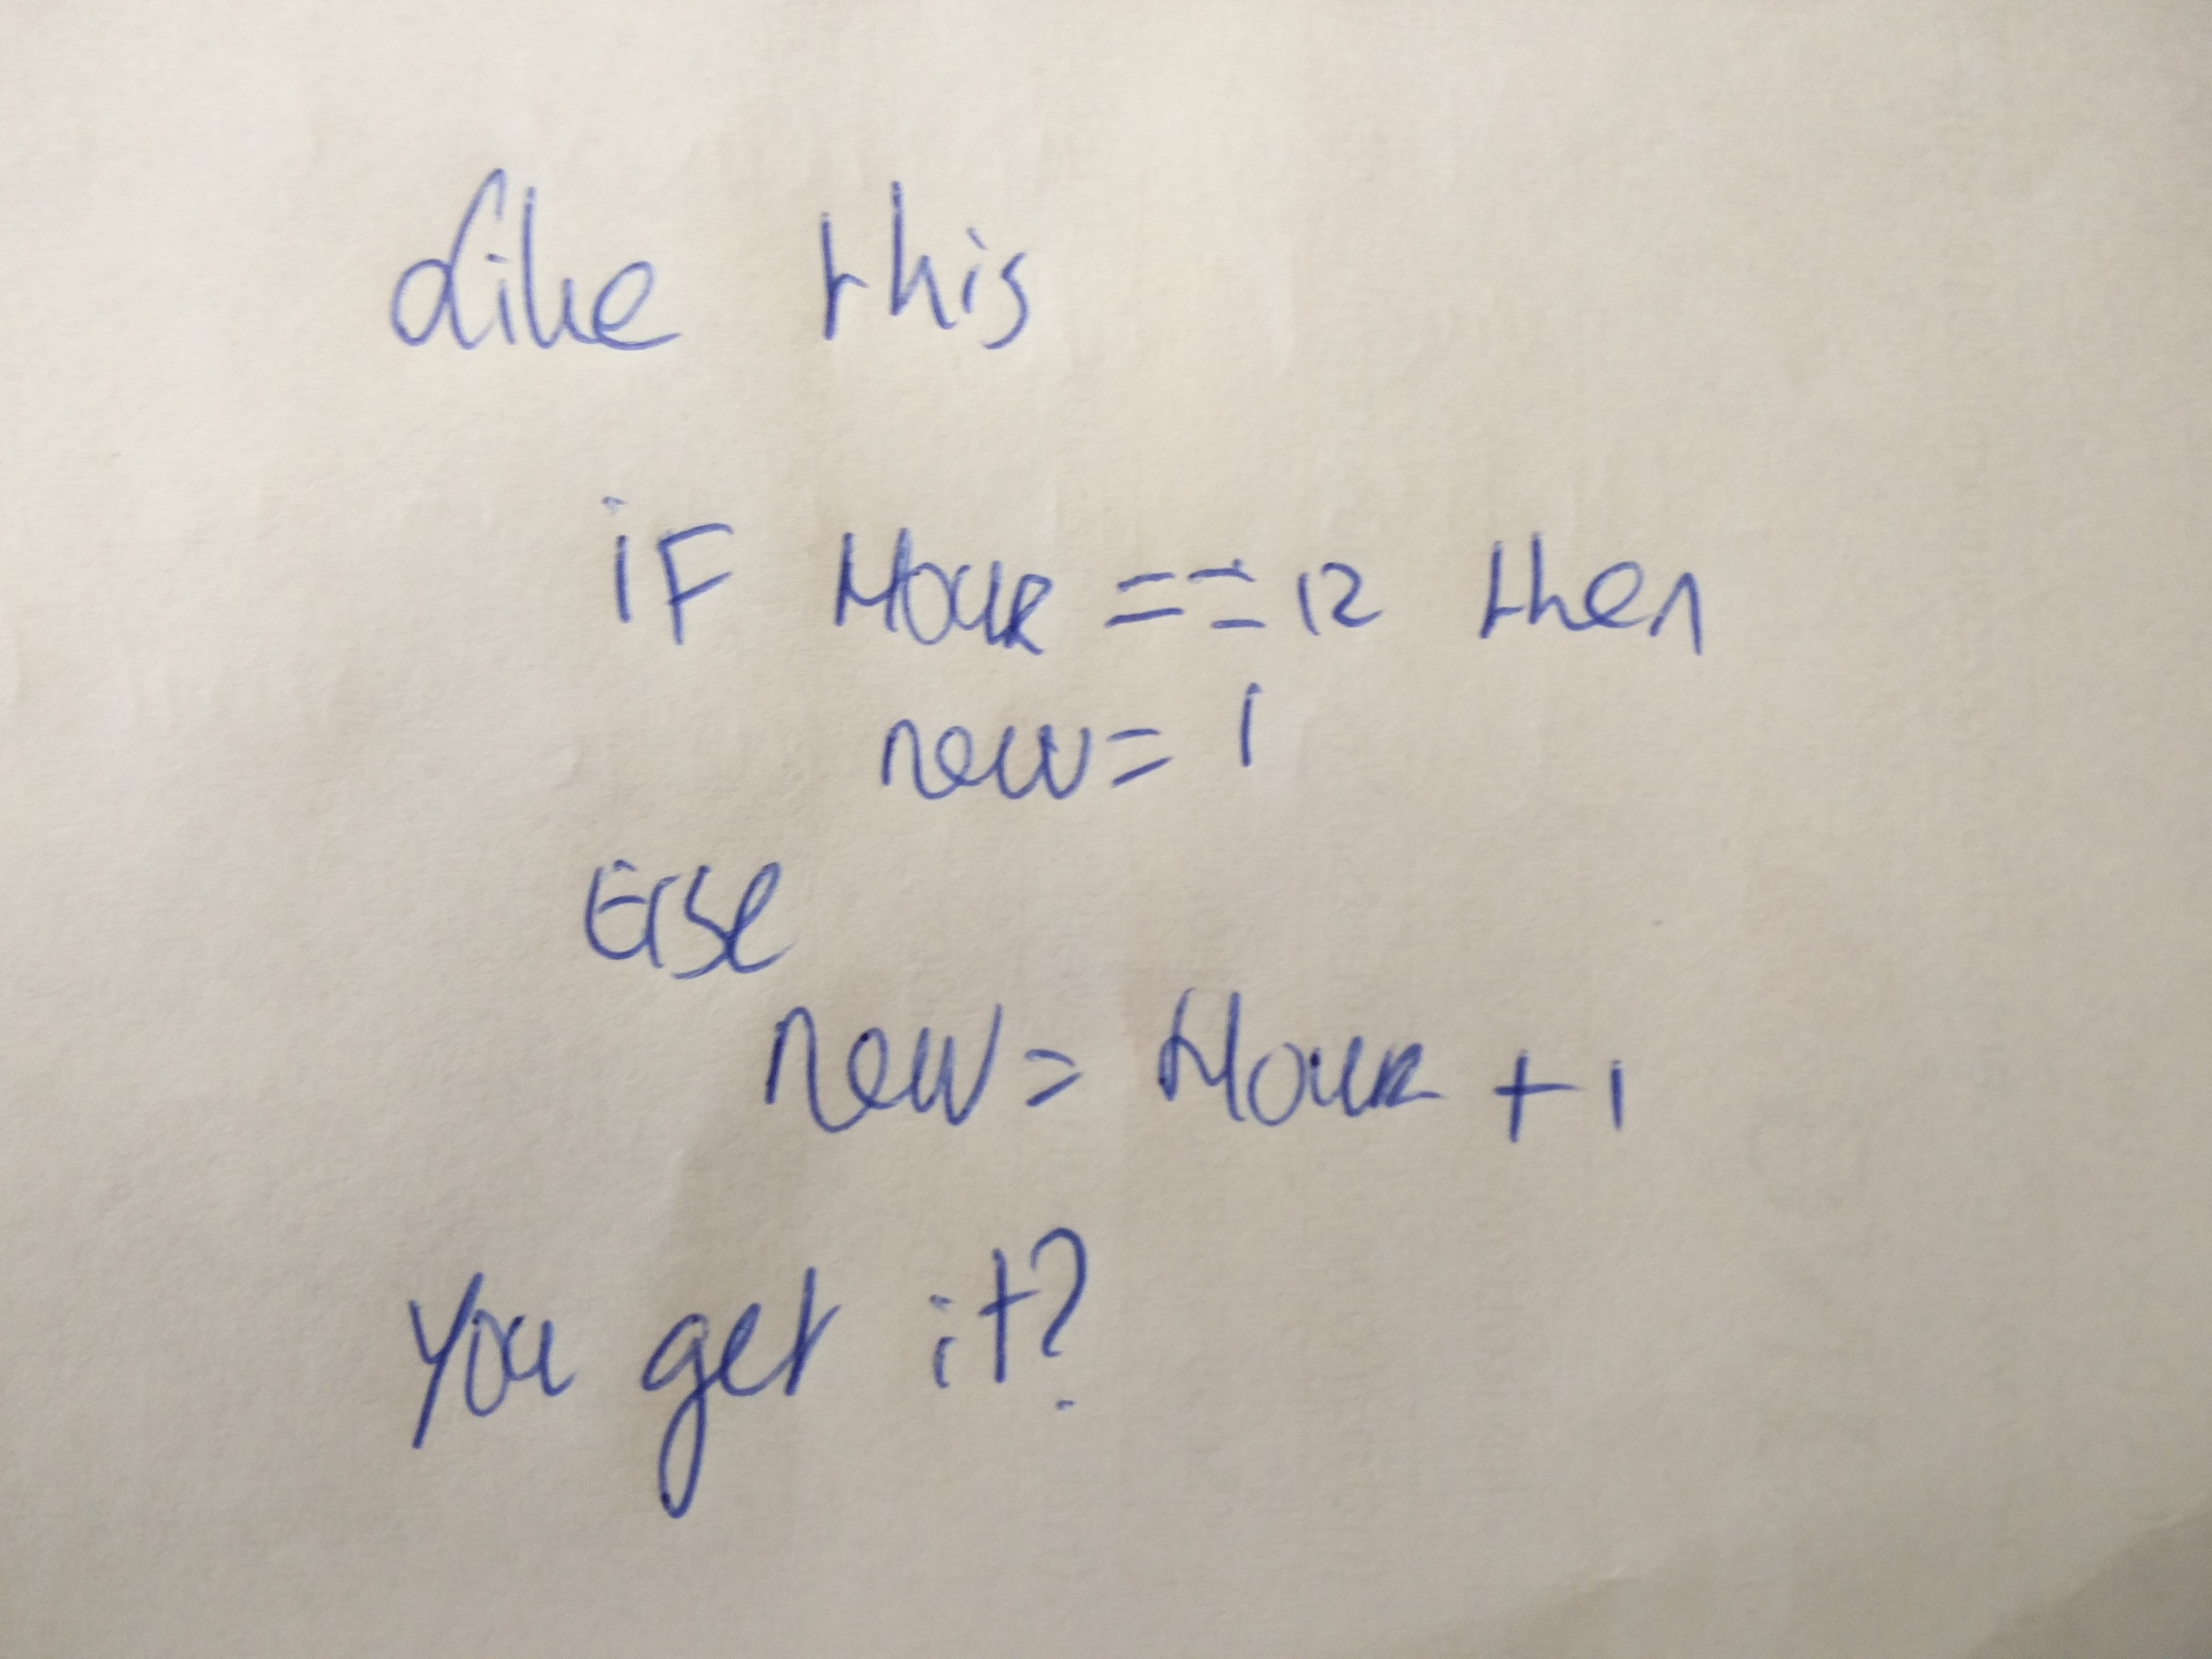 Like this
if Hour == 12 then
new = 1
Else
new = Hour + 1
You get it?